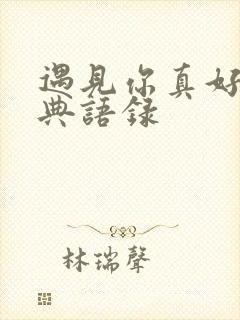 遇見你真好
典語錄
林瑞聲